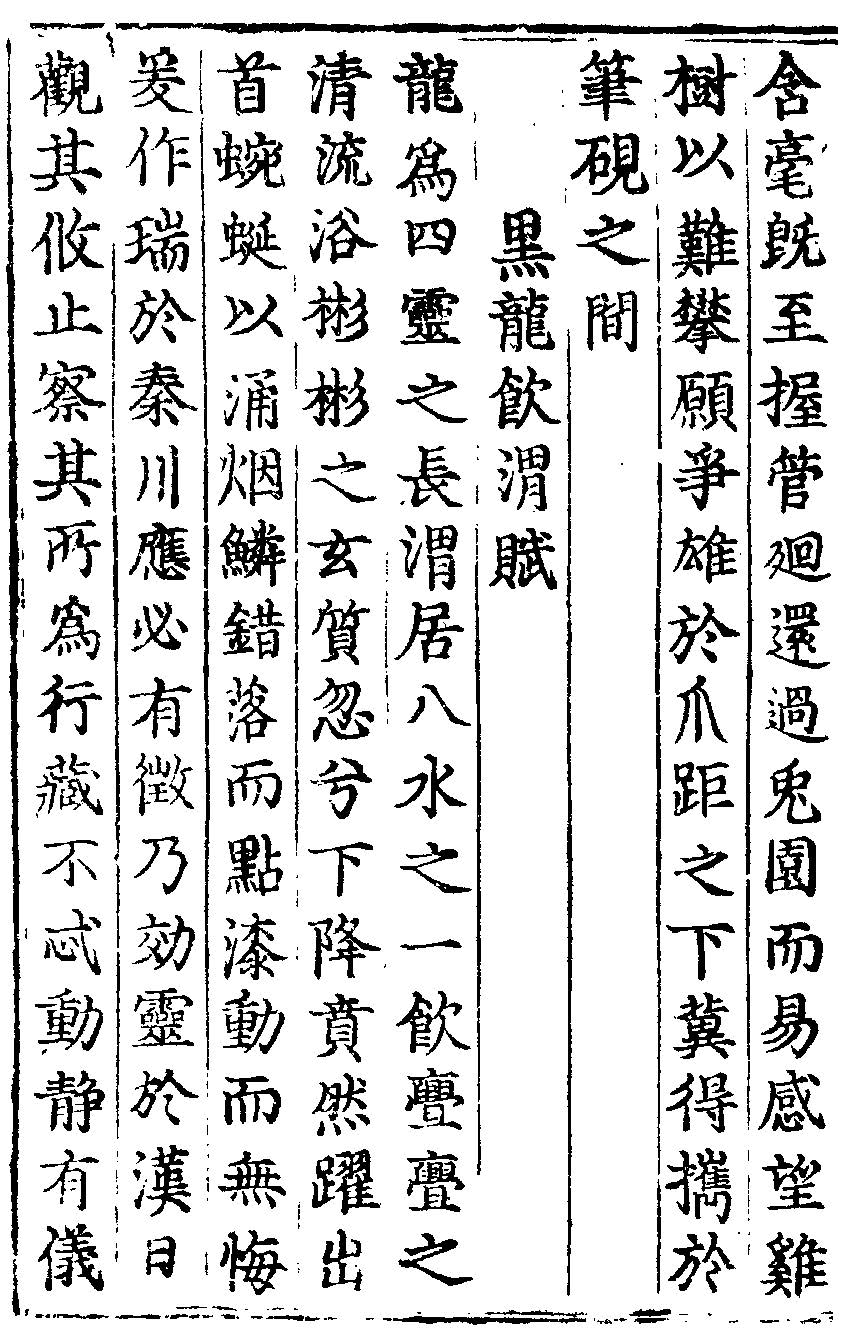 含毫旣至握管廻還過兎園而易感望雞
樹以難攀願爭雄於爪距之下冀得攜於
筆硯之間
黒龍飲渭賦
龍爲四靈之長渭居八水之一飲亹亹之
清流浴彬彬之玄質忽兮下降賁然躍出
首蜿蜒以涌烟鱗錯落而點漆動而無悔
爰作瑞於秦川應必有徴乃効靈於漢日
觀其攸止察其所爲行藏不忒動静有儀